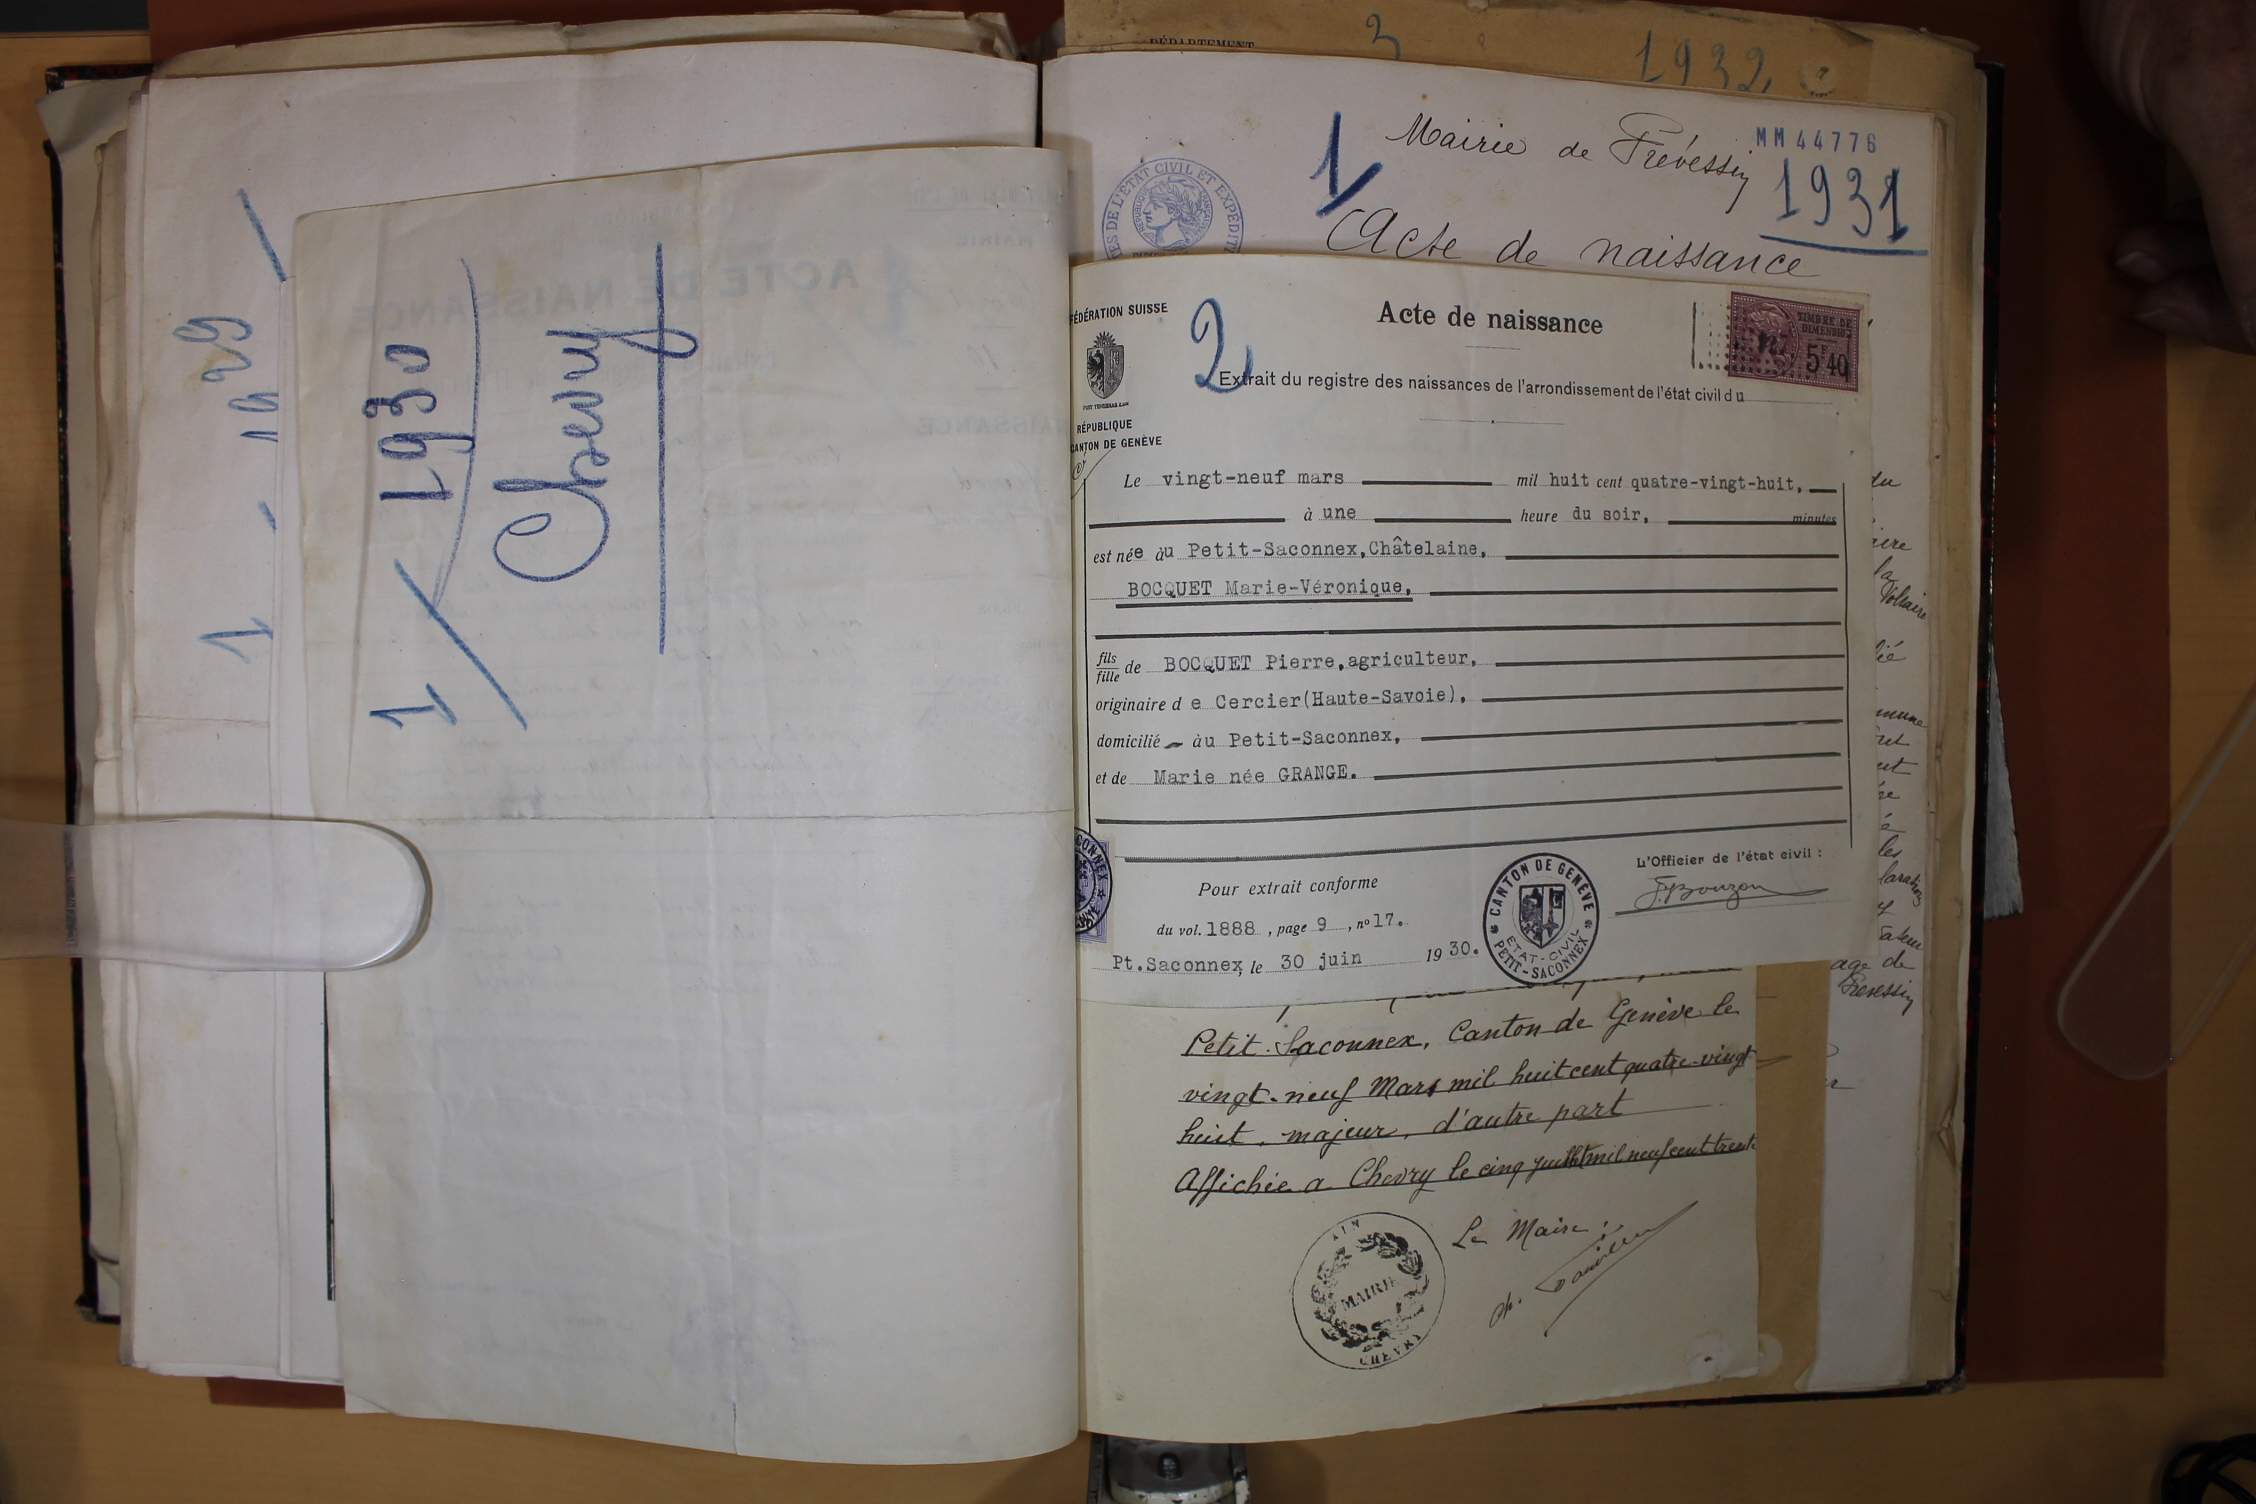 1 - 1929
1 / 1930
Chevry
DÉPARTEMENT
3
1932
1
Mairie de Prévessin
MM44776
1931
Acte de naissance
RÉPUBLIQUE
FÉDÉRATION SUISSE
RÉPUBLIQUE
CANTON DE GENÈVE
2
Acte de naissance
TIMBRE DE
DIMENSION
5F40
Extrait du registre des naissances de l'arrondissement de l'état civil du
Le vingt-neuf mars mil huit cent quatre-vingt-huit,
à une heure du soir, minutes
est née àu Petit-Saconnex,Châtelaine,
BOCQUET Marie-Véronique,
fils
fille de BOCQUET Pierre,agriculteur,
originaire d e Cercier(Haute-Savoie),
domicilié - àu Petit-Saconnex,
et de Marie née GRANGE.
Pour extrait conforme
du vol. 1888 , page 9 , n° 17.
Pt.Saconnex, le 30 juin 1930.
CANTON DE GENÈVE
ETAT-CIVIL
PETIT-SACONNEX
L'Officier de l'état civil :
Petit-Saconnex, Canton de Genève le
vingt-neuf Mars mil huit cent quatre-vingt
huit, majeur, d'autre part
Affichée a Chevry le cinq juillet mil neuf cent trente
Le Maire :
AIN
MAIRIE
CHEVRY
du
Voltaire
age de
Prévessin